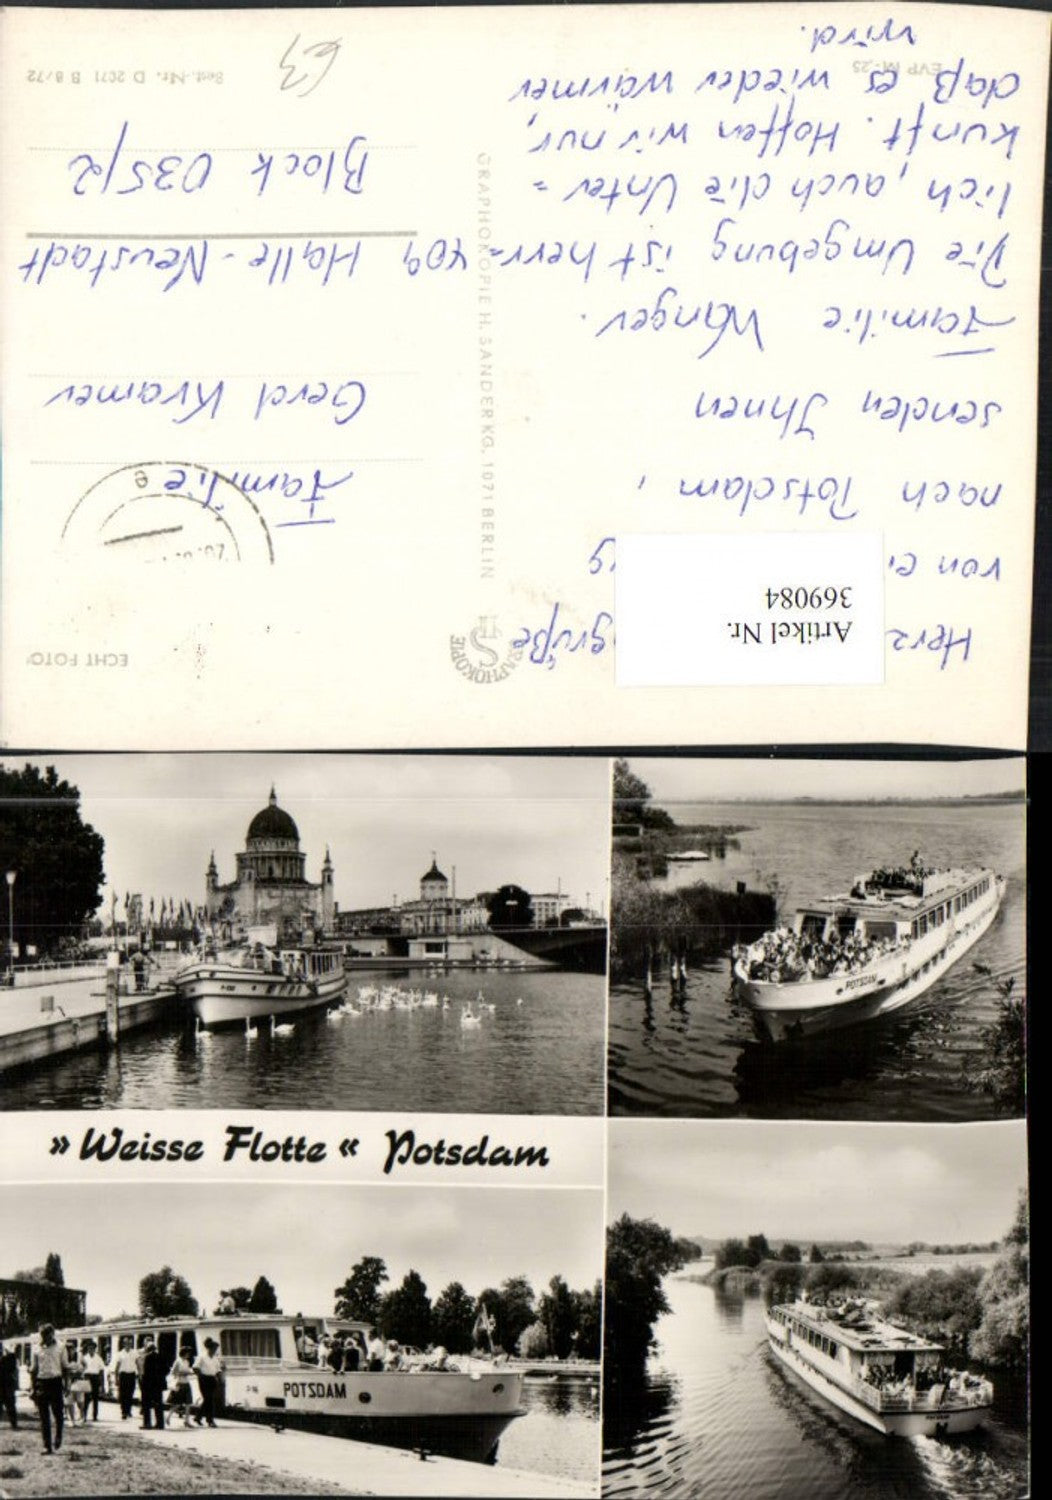 Herz grüße
von ei g
nach Potsdam,
senden Ihnen
Familie Wanger.
Die Umgebung ist herr=
lich, auch die Unter=
kunft. Hoffen wir nur,
daß es wieder wärmer
wird.
EVP M -.25
Artikel Nr.
369084
GRAPHOKOPIE
GRAPHOKOPIE H. SANDER KG, 1071 BERLIN
ECHT FOTO
Familie
Gerd Kramer
409 Halle-Neustadt
Block 035/2
Best.-Nr. D 2071 B 8/72
63
»Weisse Flotte« Potsdam
POTSDAM
POTSDAM
POTSDAM